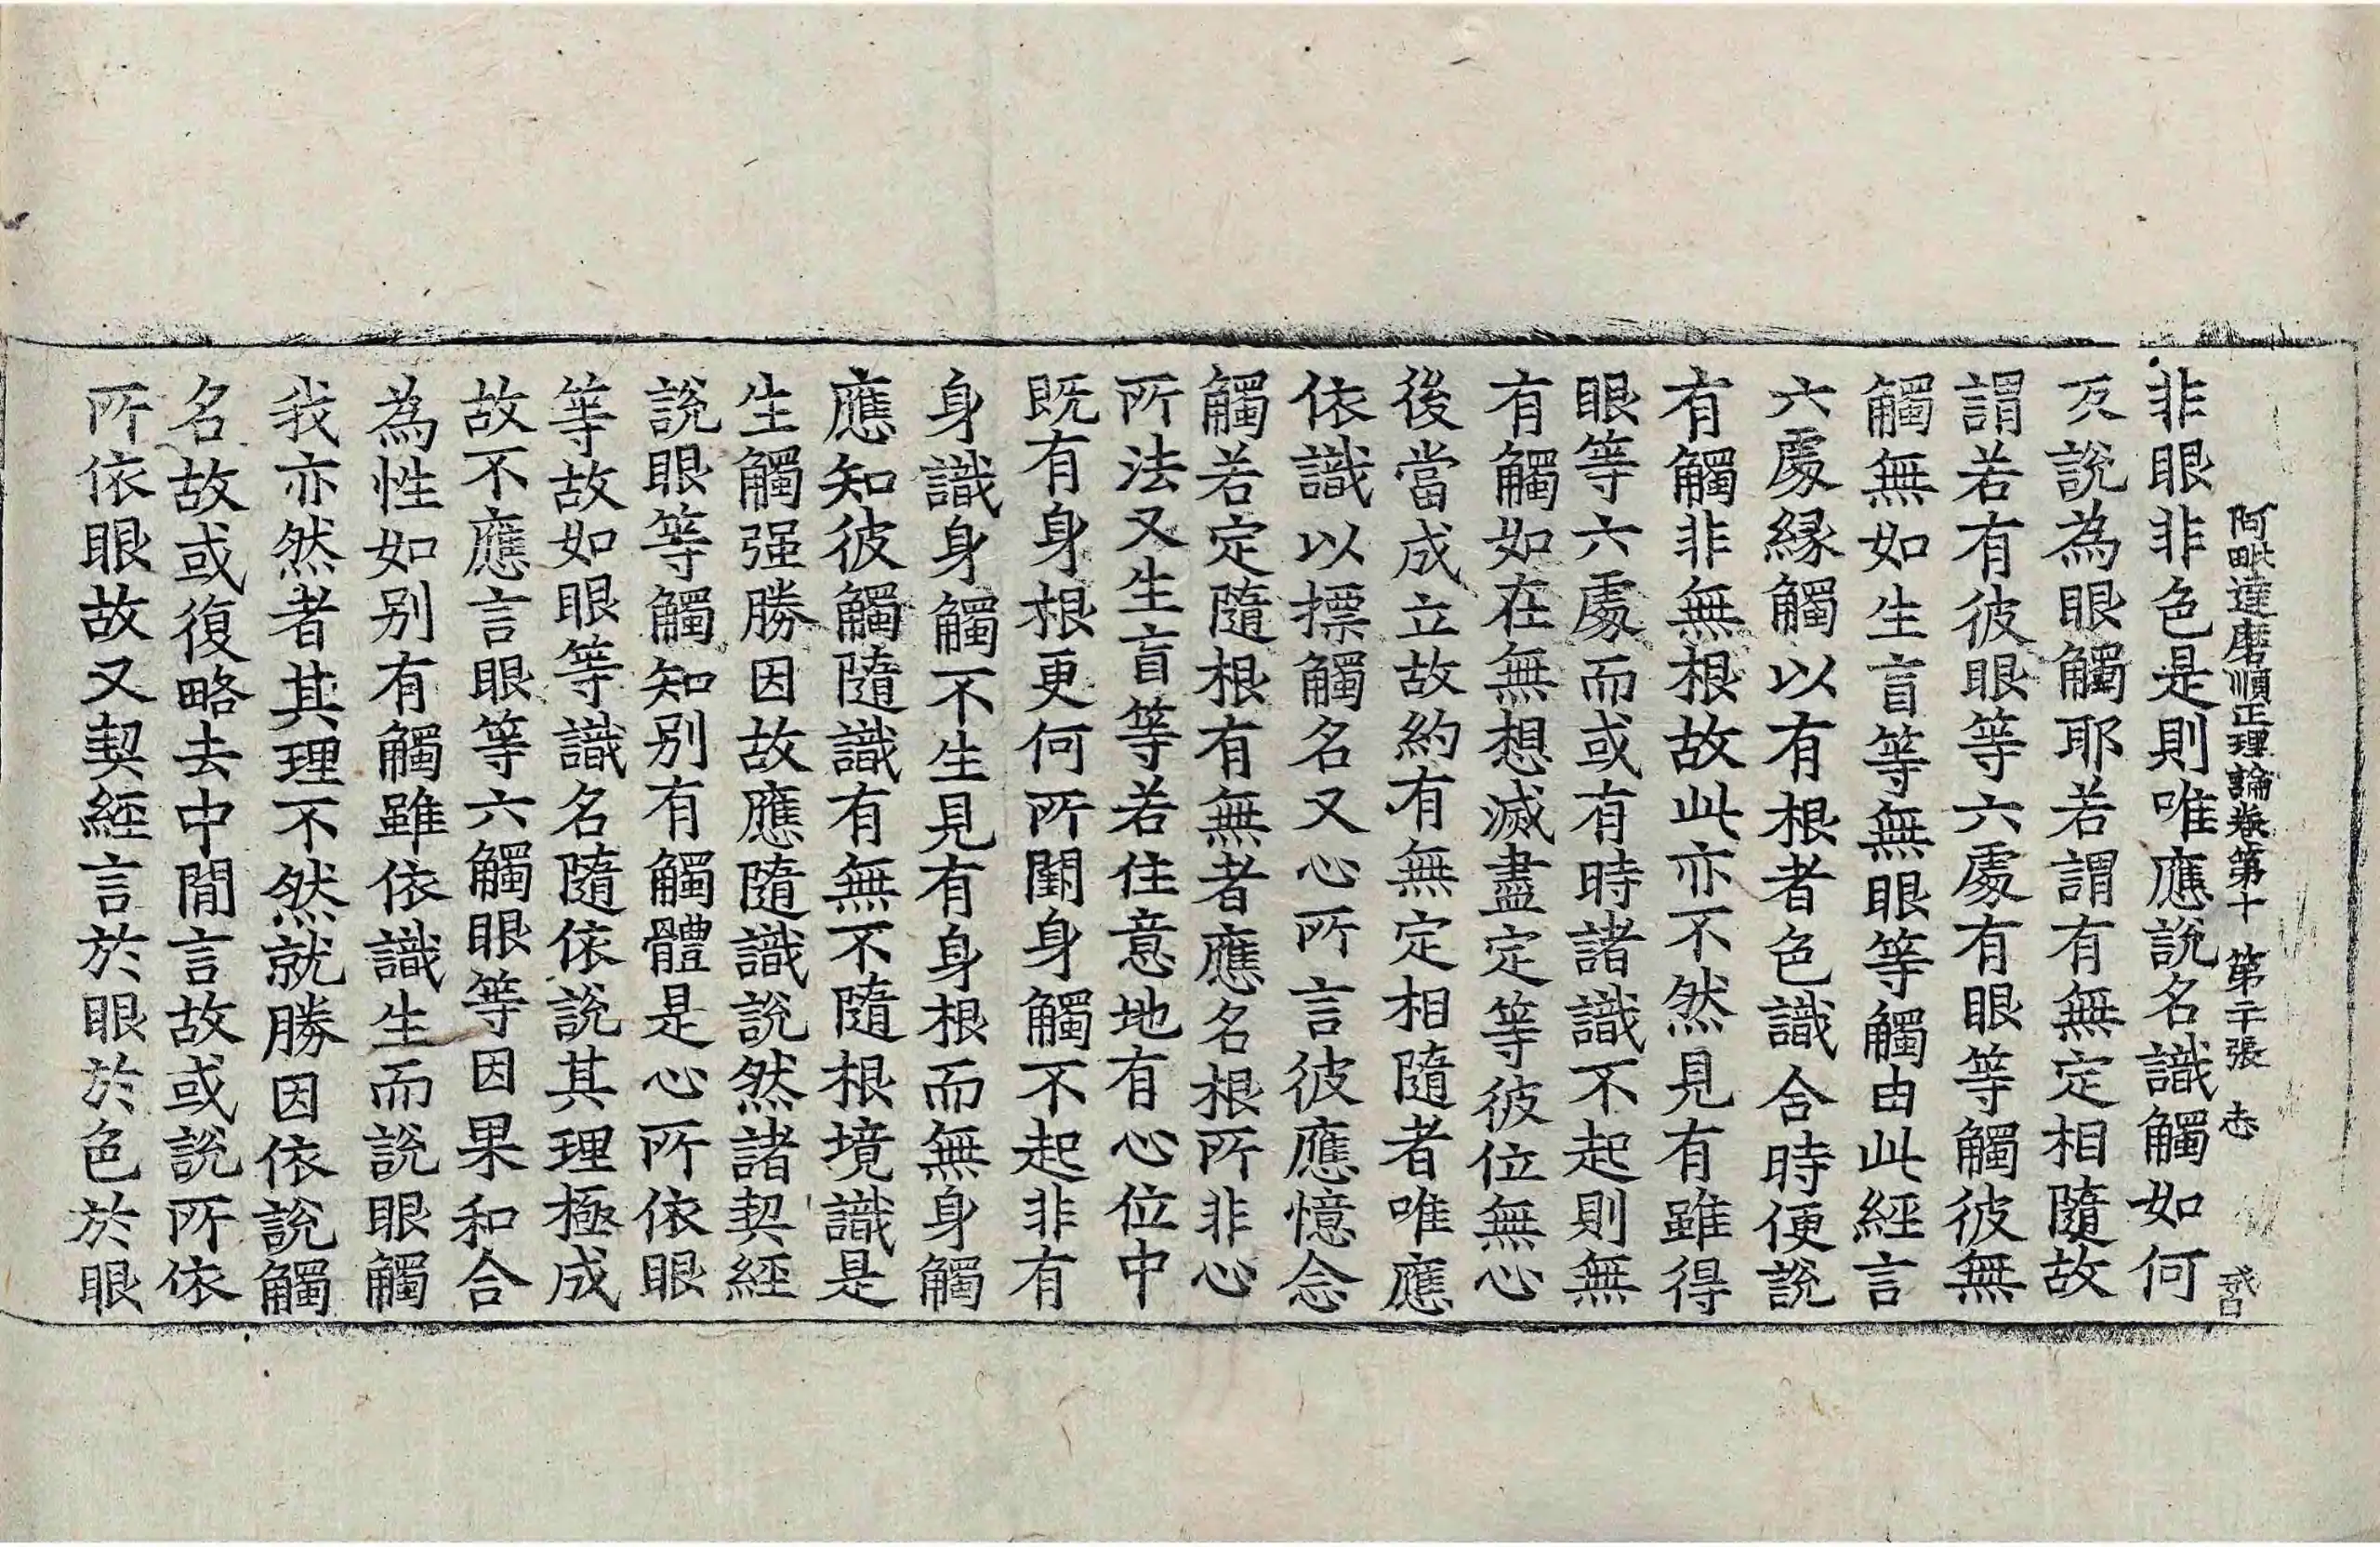 阿毗達磨順正理論卷第十 第二十張 志
非眼非色是則唯應說名識觸如何
乃說為眼觸耶若謂有無定相隨故
謂若有彼眼等六處有眼等觸彼無
觸無如生盲等無眼等觸由此經言
六處緣觸以有根者色識合時便說
有觸非無根故此亦不然見有雖得
眼等六處而或有時諸識不起則無
有觸如在無想滅盡定等彼位無心
後當成立故約有無定相隨者唯應
依識以摽觸名又心所言彼應憶念
觸若定隨根有無者應名根所非心
所法又生盲等若住意地有心位中
既有身根更何所闕身觸不起非有
身識身觸不生見有身根而無身觸
應知彼觸隨識有無不隨根境識是
生觸强勝因故應隨識說然諸契經
說眼等觸知別有觸體是心所依眼
等故如眼等識名隨依說其理極成
故不應言眼等六觸眼等因果和合
為性如别有觸雖依識生而說眼觸
我亦然者其理不然就勝因依說觸
名故或復略去中閒言故或說所依
所依眼故又契經言於眼於色於眼